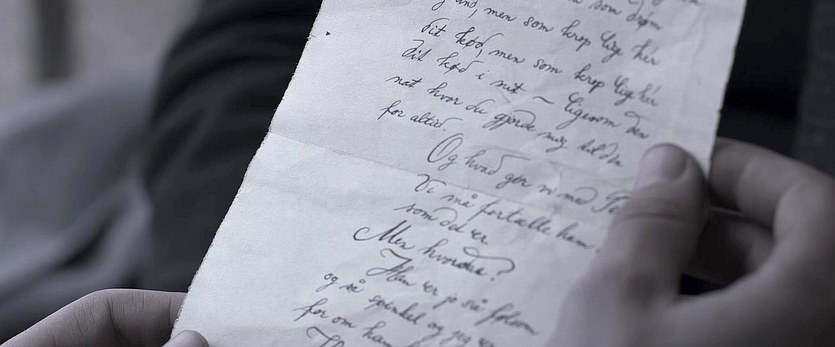 som drøm
ånd, men som krop lig her
dit kød, men som krop lig her
dit kød i mit ~ ligesom den
nat hvor du gjorde mig til din
for altid.
Og hvad gør vi med
Vi må fortælle ham
som det er
Men hvordan?
Han er jo så følsom
og så spinkel og jeg
for om han